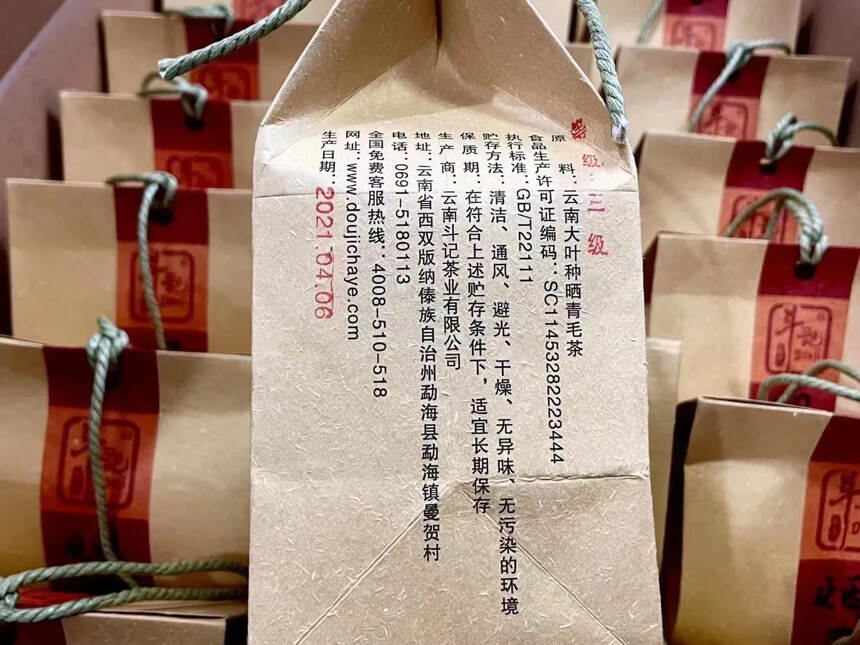 级：三 级
原 料：云南大叶种晒青毛茶
食品生产许可证编码：SC11453282223444
执行标准：GB/T22111
贮存方法：清洁、通风、避光、干燥、无异味、无污染的环境
保质期：在符合上述贮存条件下，适宜长期保存
生产商：云南斗记茶业有限公司
地址：云南省西双版纳傣族自治州勐海县勐海镇曼贺村
电话：0691-5180113
全国免费客服热线：4008-510-518
网址：www.doujichaye.com
生产日期：2021.04.06
斗記